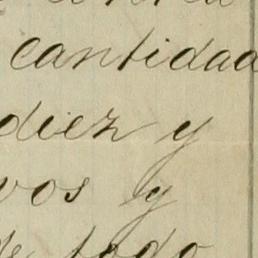 cantidad
diez y
vos y
de todo